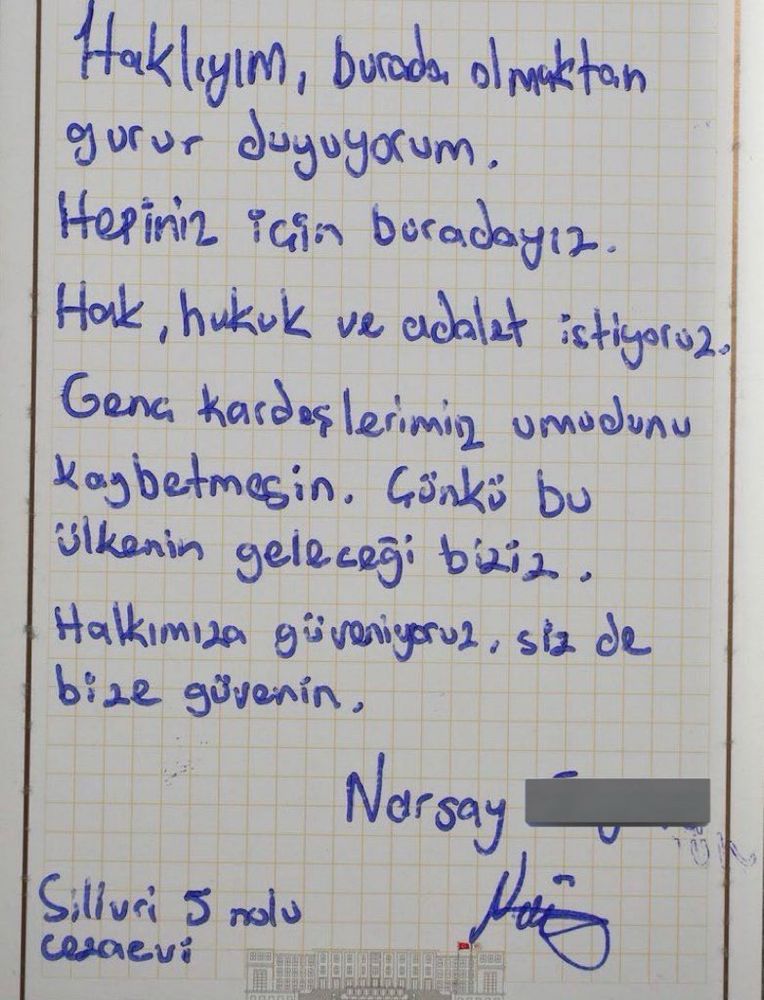 Haklıyım, burada olmaktan
gurur duyuyorum.
Hepiniz için buradayız.
Hak, hukuk ve adalet istiyoruz.
Genç kardeşlerimiz umudunu
kaybetmesin. Çünkü bu
ülkenin geleceği biziz.
Halkımıza güveniyoruz, siz de
bize güvenin.
Narsay
Silivri 5 nolu
cezaevi